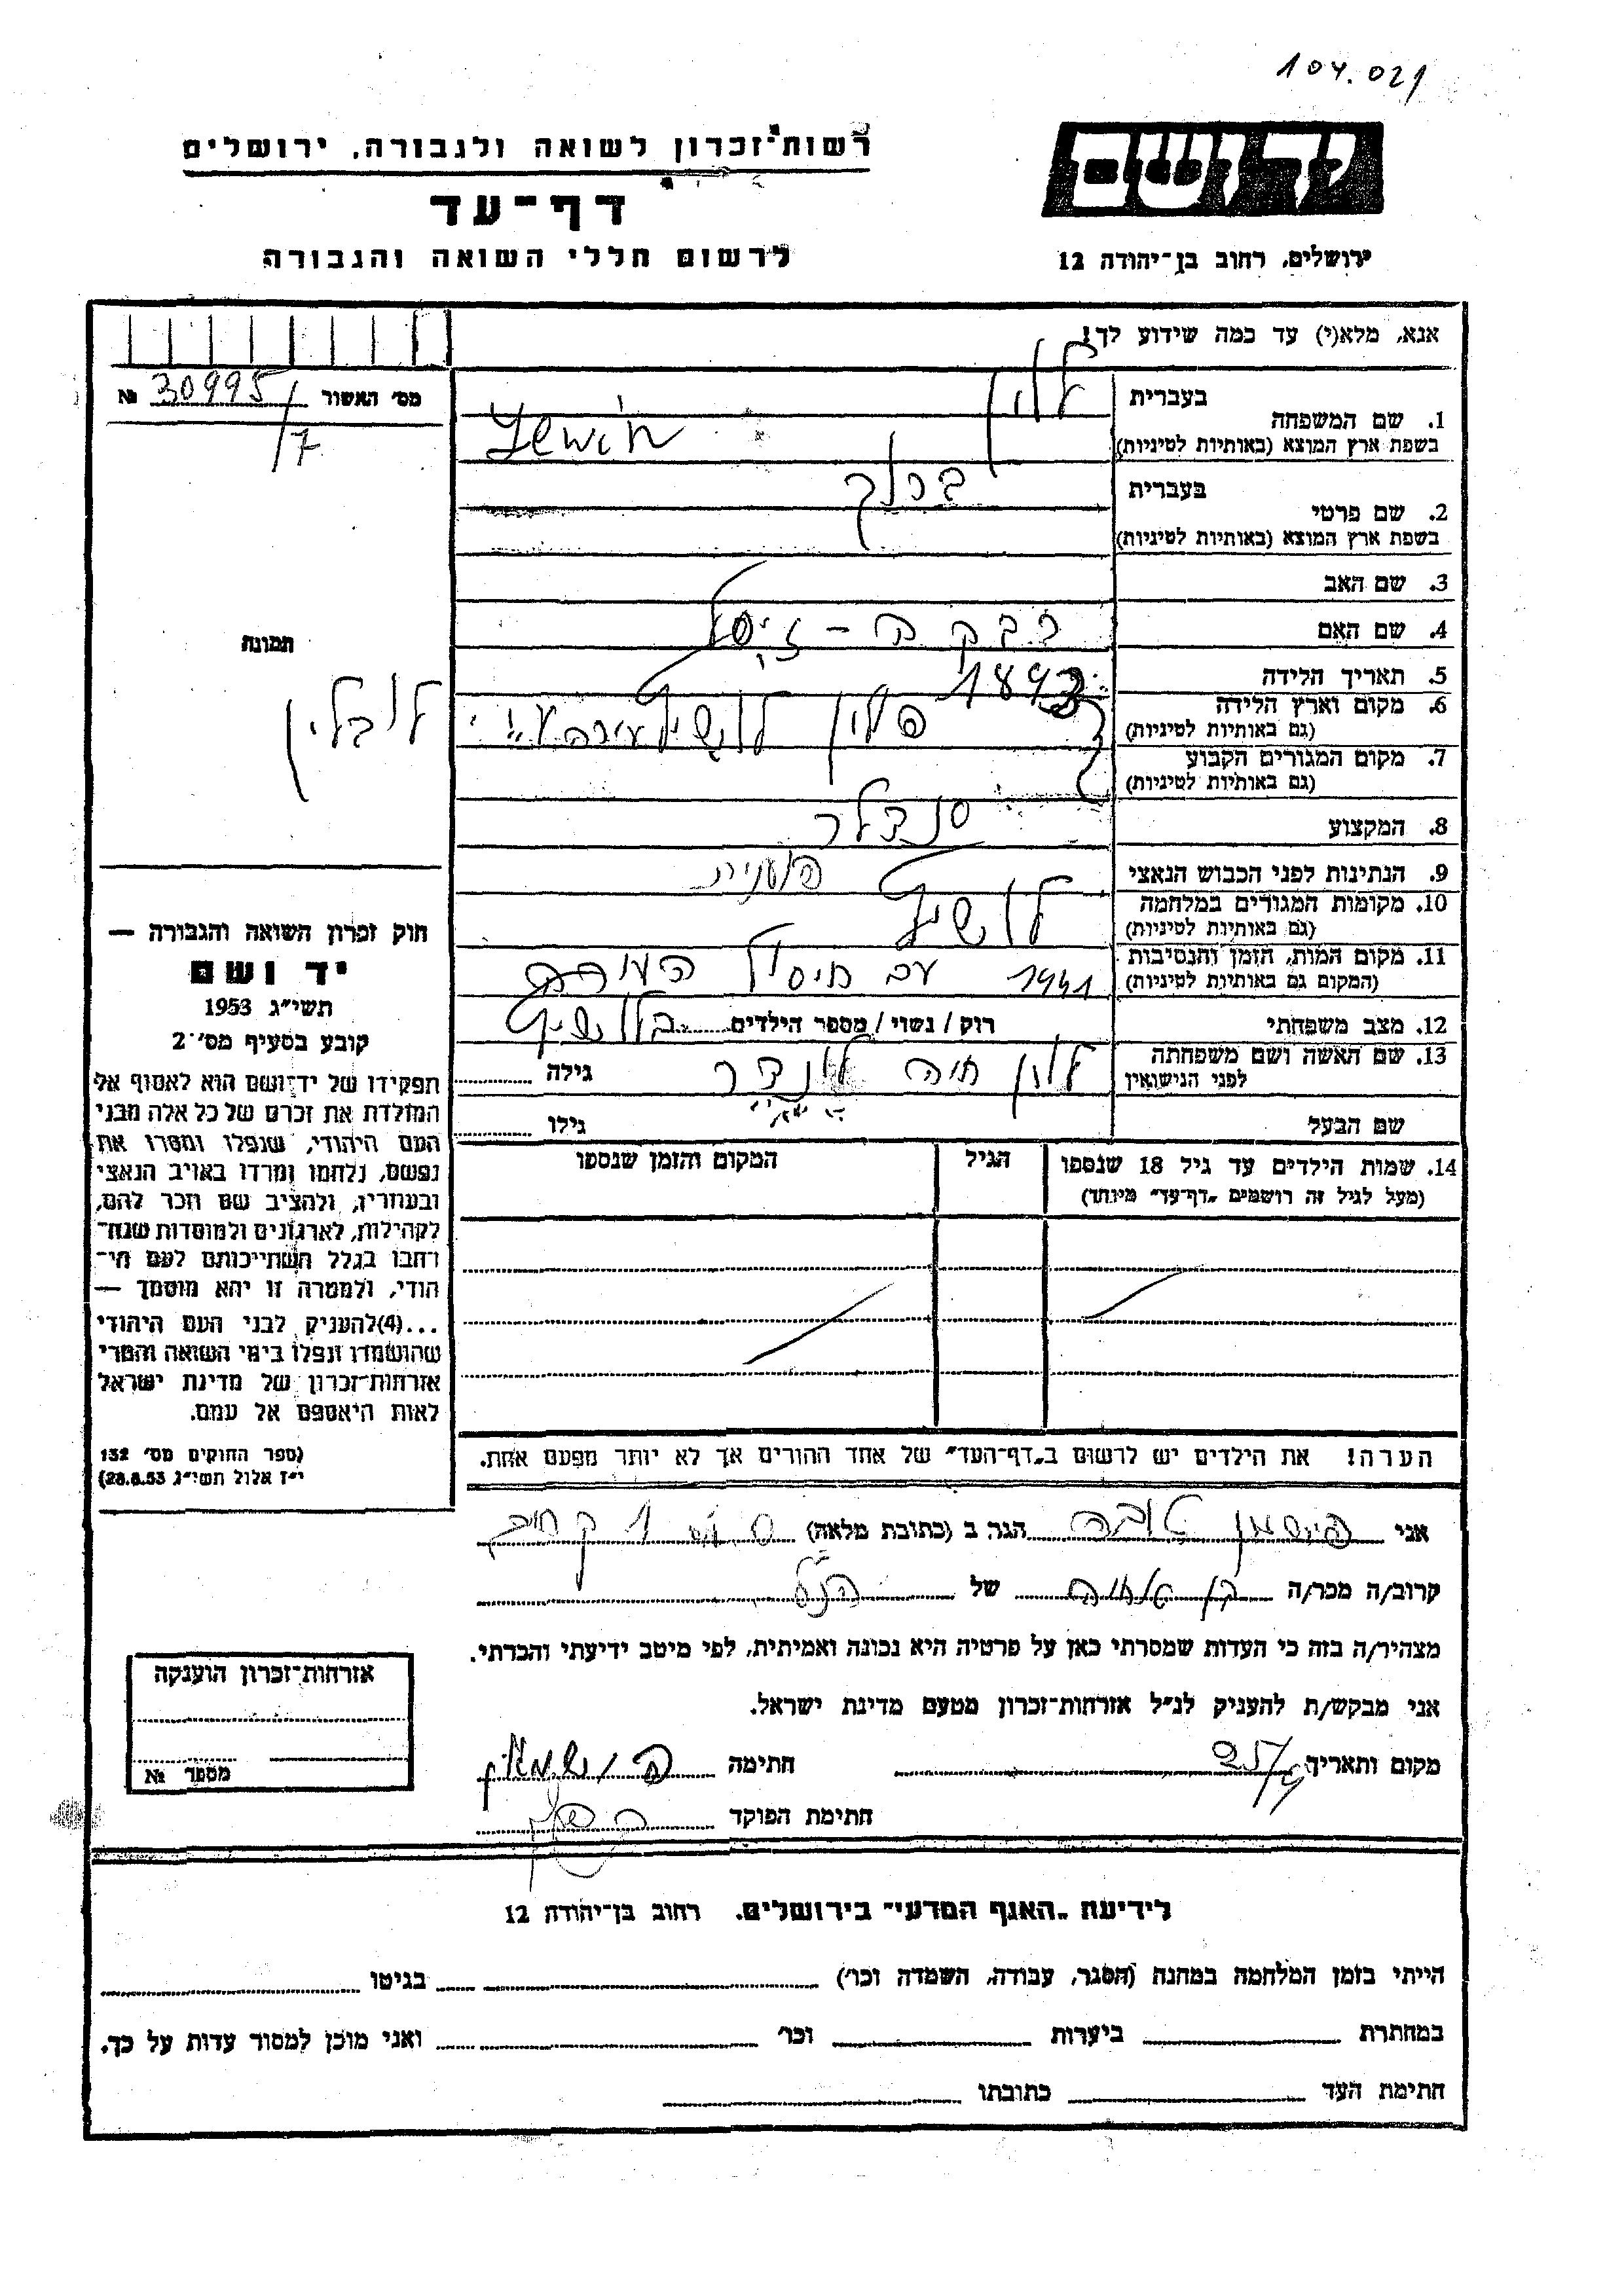 104.021
ידושם
רשות־זכרון לשואה ולגבורה, ירושלים
דף־עד
לרשום חללי השואה והגבורה
ירושלים, רחוב בן־יהודה 12
אנא, מלא(י) עד כמה שידוע לך!
מס׳ האשור 30995 №
/7
בעברית לוין
1. שם המשפחה
בשפת ארץ המוצא (באותיות לטיניות) Lewin
בעברית ברוך
2. שם פרטי
בשפת ארץ המוצא (באותיות לטיניות)
3. שם האב
4. שם האם רבקה -
5. תאריך הלידה 1893
6. מקום וארץ הלידה פולין
(גם באותיות לטיניות)
7. מקום המגורים הקבוע
(גם באותיות לטיניות)
8. המקצוע סנדלר
9. הנתינות לפני הכבוש הנאצי פולנית
10. מקומות המגורים במלחמה
(גם באותיות לטיניות)
11. מקום המות, הזמן והנסיבות 1941 עם חיסול
(המקום גם באותיות לטיניות)
12. מצב משפחתי רוק / נשוי / מספר הילדים
13. שם האשה ושם משפחתה לוין חיה גילה
לפני הנישואין
שם הבעל גילו
14. שמות הילדים עד גיל 18 שנספו הגיל המקום והזמן שנספו
(מעל לגיל זה רושמים „דף־עד״ מיוחד)
הערה! את הילדים יש לרשום ב„דף־העד״ של אחד ההורים אך לא יותר מפעם אחת.
תמונה
לובלין
חוק זכרון השואה והגבורה —
יד ושם
תשי״ג 1953
קובע בסעיף מס׳ 2
תפקידו של יד־ושם הוא לאסוף אל
המולדת את זכרם של כל אלה מבני
העם היהודי, שנפלו ומסרו את
נפשם, נלחמו ומרדו באויב הנאצי
ובעוזריו, ולהציב שם וזכר להם,
לקהילות, לארגונים ולמוסדות שנח־
רבו בגלל השתייכותם לעם הי־
הודי, ולמטרה זו יהא מוסמך —
...(4)להעניק לבני העם היהודי
שהושמדו ונפלו בימי השואה והמרי
אזרחות־זכרון של מדינת ישראל
לאות היאספם אל עמם.
(ספר החוקים מס׳ 132
י״ז אלול תשי״ג, 28.8.53)
אני פישמן טובה הגר, ב (כתובת מלאה)
קרוב/ה מכר/ה בן של הנ״ל
מצהיר/ה בזה כי העדות שמסרתי כאן על פרטיה היא נכונה ואמיתית, לפי מיטב ידיעתי והכרתי.
אני מבקש/ת להעניק לנ״ל אזרחות־זכרון מטעם מדינת ישראל.
מקום ותאריך חתימה
חתימת הפוקד
אזרחות־זכרון הוענקה
מספר №
לידיעת „האגף המדעי״ בירושלים, רחוב בן־יהודה 12
הייתי בזמן המלחמה במחנה (הסגר, עבודה, השמדה וכר׳) בגיטו
במחתרת ביערות וכר׳ ואני מוכן למסור עדות על כך.
חתימת העד כתובתו